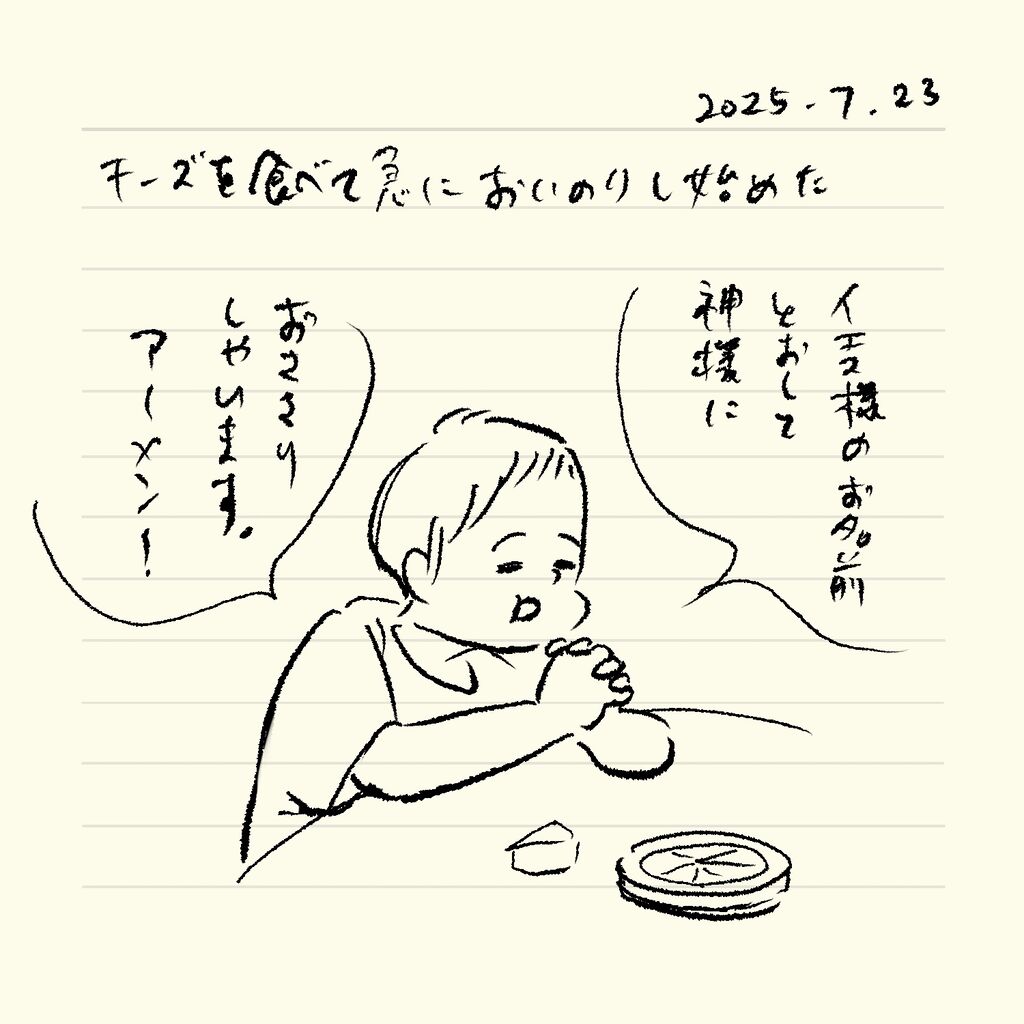 2025.7.23
チーズを食べて急においのりし始めた
イエス様のお名前
とおして
神様に
おささり
しゃいます。
アーメン!